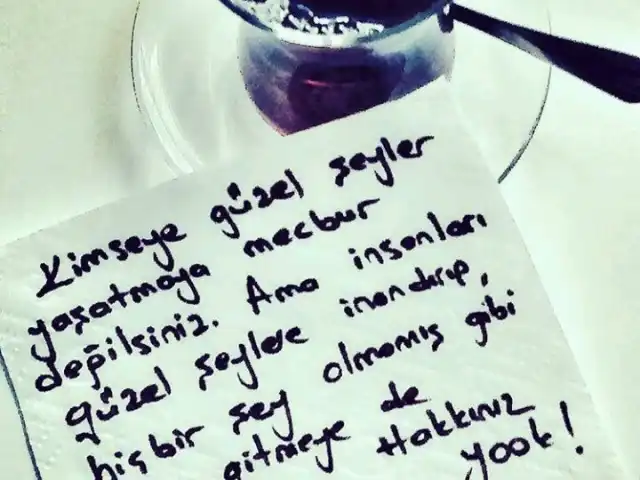 Kimseye güzel şeyler
yaşatmaya mecbur
değilsiniz. Ama insanları
güzel şeylere inandırıp,
hiçbir şey olmamış gibi
gitmeye de Hakkınız
yook!